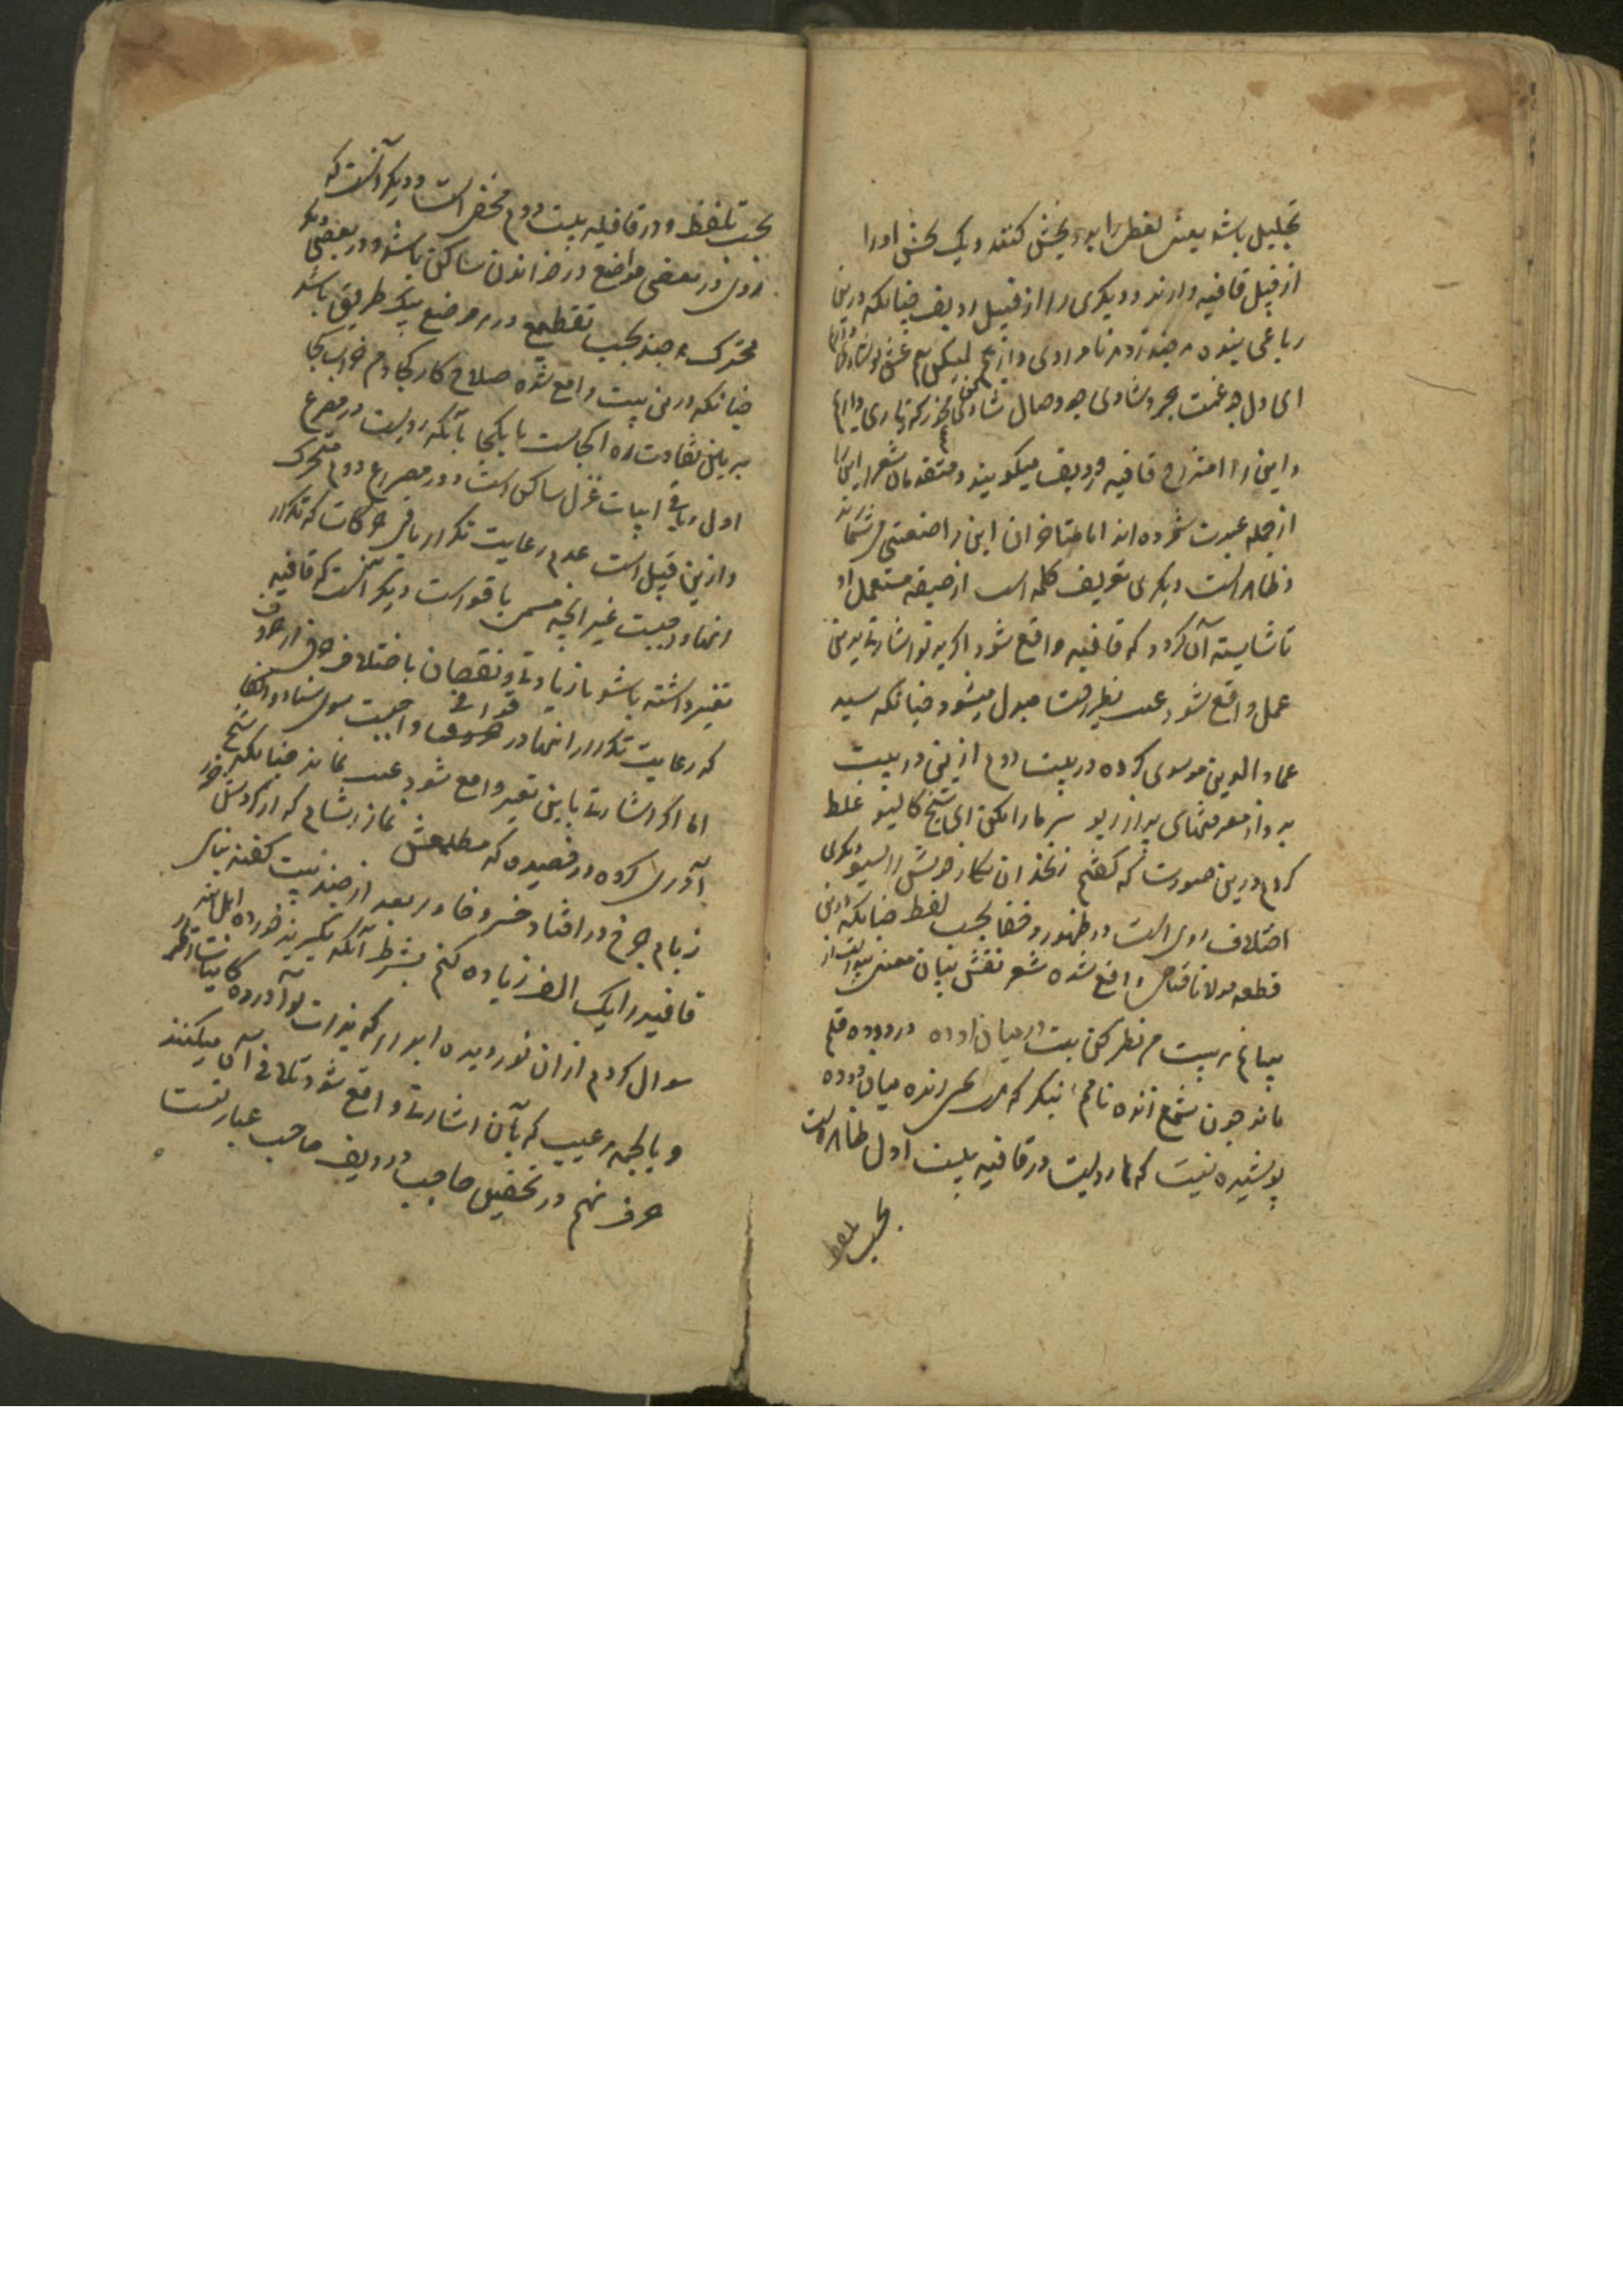 بتحلیل باشد یعنی لفظی را بدو بخش کنند و یک بخش او را
از قبیل قافیه دارند و دیگری را از قبیل ردیف چنانکه درین
رباعی بنده هر چند زد هر نامرادی داریم لیکن بغم عشق تو شادی داریم
ای دل چو غمت هجر و شادی چو وصال شادی مخور که نامرادی داریم
و این را امتزاج قافیه و ردیف میگویند و متقدمان شعرا این را
از جمله عیوب شمرده اند اما متاخران این را صنعتی می شمارند
و ظاهر است دیگری تحریف کلمه است از صیغه مستعمل او
تا شایسته آن گردد که قافیه واقع شود اگر برو اشارت برین
عمل واقع شود عیب بظرافت مبدل میشود چنانکه سید
عماد الدین موسوی کرده در بیت دوم ازین دو بیت
برو از معرفتهای پر از ریو سر ما را مکن ای شیخ کالیو غلط
کردم درین صورت که گفتم زنخدان نگار خویش را سیو دیگری
اختلاف روی است در ظهور و خفا بحسب لفظ چنانکه درین
قطعه مولانا واقع شده شعر نقش بیان معنی
بیانم بیت نظر کن بیت در میان دوده قلم
ماند چون شمع زنده نامم بنگر که هر سحر زنده میان دوده
پوشیده نیست که ها رویست در قافیه بیت اول ظاهر است
بحسب تلفظ
بحسب تلفظ و در قافیه بیت دوم مخفی است و دیگر آنست که
روی در بعضی مواضع در خواندن ساکن باشد و در بعضی دیگر
متحرک هر چند بحسب تقطیع در هر موضع بیک طریق باشد
چنانکه درین بیت واقع شده صلاح کار کجا و من خراب کجا
ببین تفاوت ره از کجاست تا بکجا با آنکه رویست در مصرع
اول و باقی ابیات غزل ساکن است و در مصراع دوم متحرک
و ازین قبیل است عدم رعایت تکرار باقی حرکات که تکرار
آنها واجبست غیر آنچه مسمی باقواست دیگر آنست که قافیه
تغییر داشته باشد بازیادت و نقصان باختلاف حرفی از حروف
که رعایت تکرار آنها در قوافی واجبست سوای سناد و اکفا
اما اگر اشارت باین تغییر واقع شود عیب نماند چنانکه شیخ
آذری کرده در قصیده که مطلعش نماز شام که از گردش خور
زبام چرخ در افتاد خسرو خاور بعد از چند بیت گفته بنای
قافیه را یک الف زیاده کنم بشرط آنکه نگیرند خورده اهل هنر
سوال کردم از آن نور دیده ابرار که بذات تو آورده کاینات اقرار
و بالجمله هر عیب که بآن اشارت واقع شود تلافی آن میکنند
حرف نهم در تحقیق حاجب و ردیف حاجب عبارتست